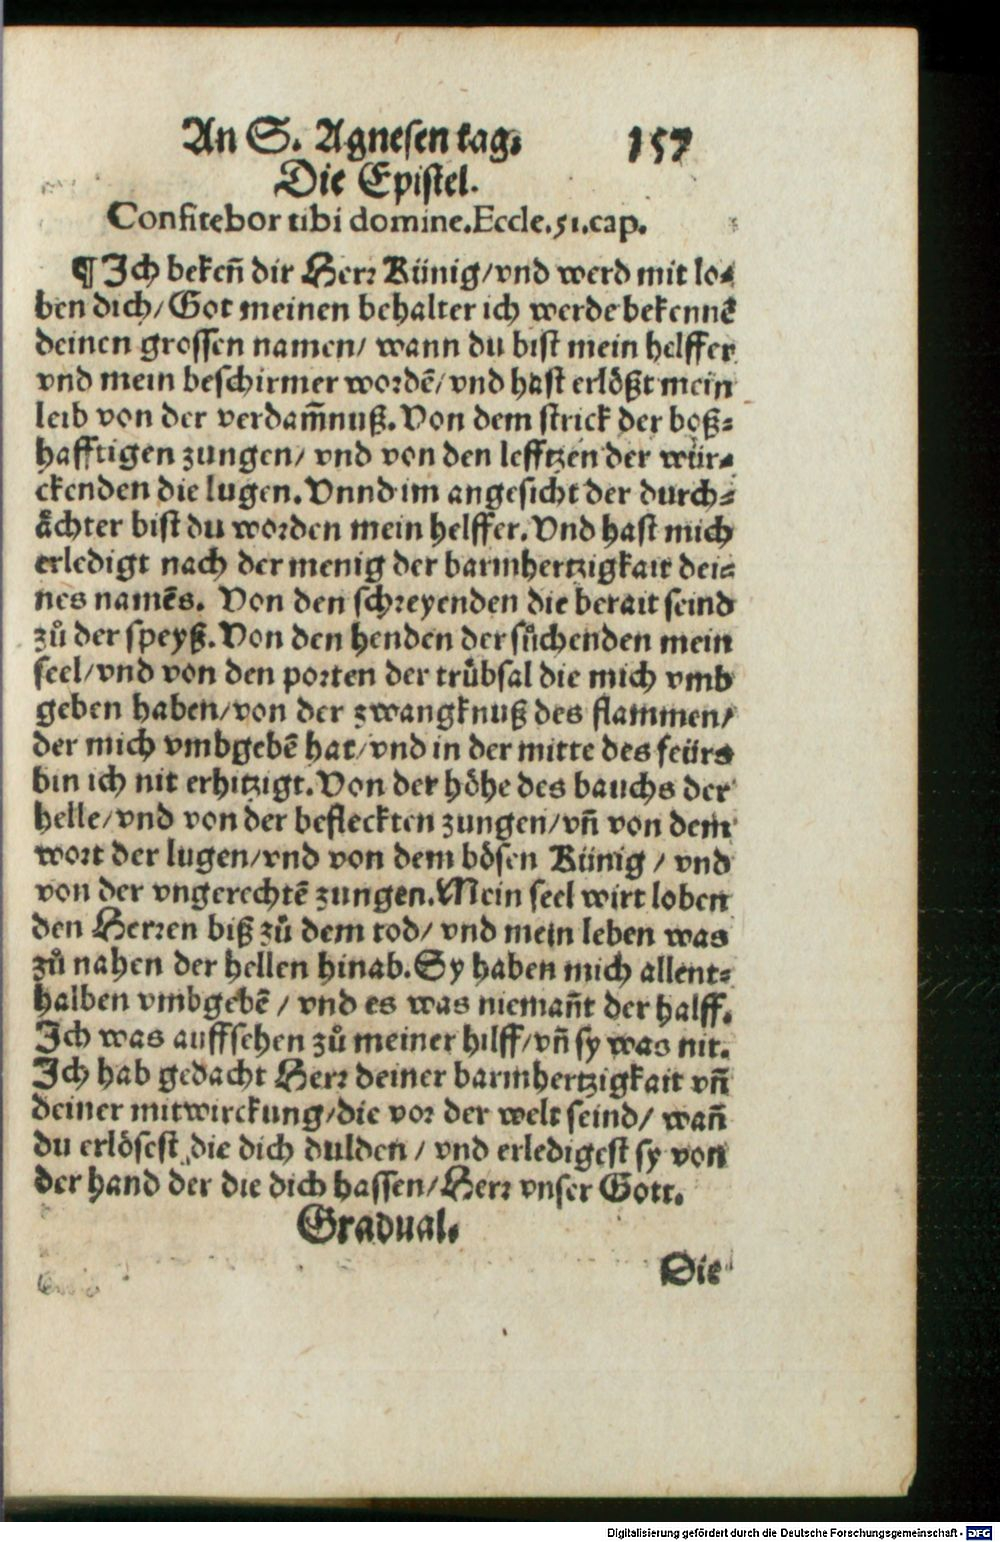 An S. Agnesen tag. 157
Die Epistel.
Confitebor tibi domine. Eccle. 51. cap.
¶ Ich bekeñ dir Herr Künig/vnd werd mit lo⸗
ben dich/Got meinen behalter ich werde bekennē
deinen grossen namen/ wann du bist mein helffer
vnd mein beschirmer wordē/vnd hast erlößt mein
leib von der verdam̃nuß. Von dem strick der boß⸗
hafftigen zungen/ vnd von den lefftzen der wür⸗
ckenden die lugen. Vnnd im angesicht der durch⸗
aͤchter bist du worden mein helffer. Vnd hast mich
erledigt nach der menig der barmhertzigkait dei⸗
nes namēs. Von den schreyenden die berait seind
zů der speyß. Von den henden der sůchenden mein
seel/vnd von den porten der trůbsal die mich vmb
geben haben/von der zwangknuß des flammen/
der mich vmbgebē hat/vnd in der mitte des feürs
bin ich nit erhitzigt. Von der höhe des bauchs der
helle/vnd von der befleckten zungen/vñ von dem
wort der lugen/vnd von dem bösen Künig / vnd
von der vngerechtē zungen. Mein seel wirt loben
den Herren biß zů dem tod/ vnd mein leben was
zů nahen der hellen hinab. Sy haben mich allent⸗
halben vmbgebē / vnd es was niemañt der halff.
Ich was auffsehen zů meiner hilff/vñ sy was nit.
Ich hab gedacht Herr deiner barmhertzigkait vñ
deiner mitwirckung/die vor der welt seind/ wañ
du erlösest die dich dulden / vnd erledigest sy von
der hand der die dich hassen/Herr vnser Gott.
Gradual.
Die
Digitalisierung gefördert durch die Deutsche Forschungsgemeinschaft - DFG